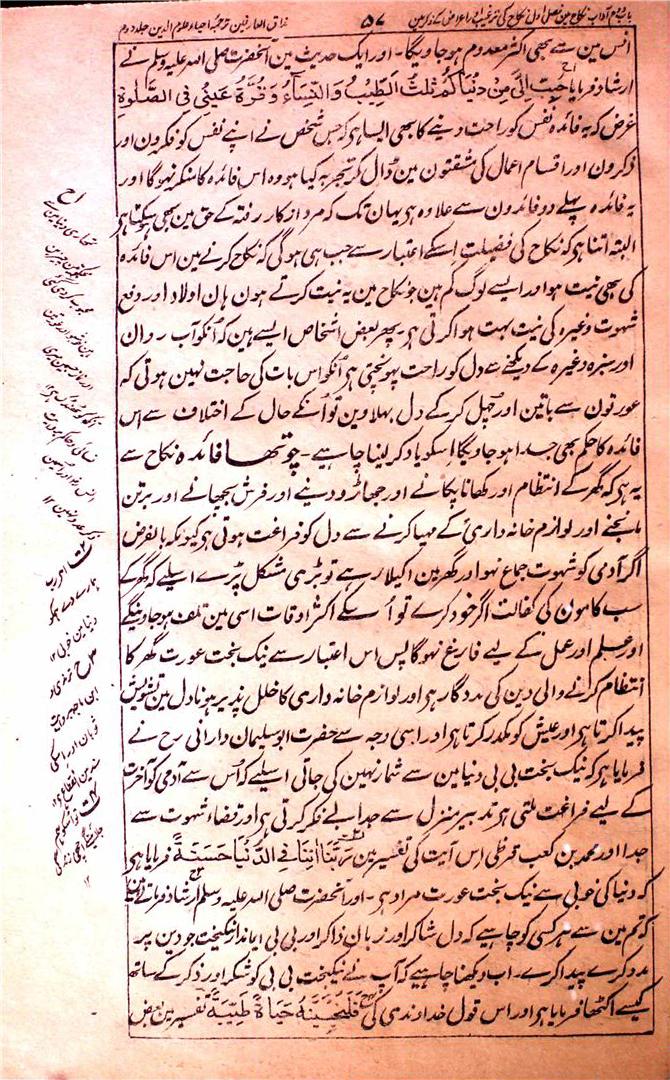 مذاق العارفین ترجمہ احیاء علوم الدین جلد دوم
۵۷
باب دوم آداب نکاح میں فصل اول نکاح کی ترغیب اور اعراض کے ذکر میں
انس مین سے بھی اکثر معدوم ہو جاویگا۔ اور ایک حدیث مین آنحضرت صلی اللہ علیہ وسلم نے
ارشاد فرمایا حُبِّبَ اِلَیَّ مِنْ دُنْیَاکُمْ ثَلٰثٌ الطِّیْبُ وَالنِّسَاءُ وَقُرَّةُ عَیْنِیْ فِی الصَّلٰوةِ
غرض کہ یہ فائدہ نفس کو راحت دینے کا بھی ایسا ہی کہ جس شخص نے اپنے نفس کو فکرون اور
ذکرون اور اقسام اعمال کی مشقتون مین ڈال کر تجربہ کیا ہو وہ اس فائدہ کا منکر نہوگا اور
یہ فائدہ پہلے دو فائدون سے علاوہ ہو یہان تک کہ مرد از کار رفتہ کے حق مین بھی ہو سکتا ہی
البتہ اتنا ہی کہ نکاح کی فضیلت اسکے اعتبار سے جب ہی ہوگی کہ نکاح کرنے مین اس فائدہ
کی بھی نیت ہو اور ایسے لوگ کم ہین جو نکاح مین یہ نیت کرتے ہون ہان اولاد اور دفع
شہوت وغیرہ کی نیت بہت ہوا کرتی ہی پھر بعض اشخاص ایسے ہین کہ اُنکو آب روان
اور سبزہ وغیرہ کے دیکھنے سے دل کو راحت پہونچتی ہی اُنکو اس بات کی حاجت نہین ہوتی کہ
عورتون سے باتین اور چہل کر کے دل بہلاوین تو اُنکے حال کے اختلاف سے اس
فائدہ کا حکم بھی جدا ہو جاویگا اسکو یاد کر لینا چاہیے۔ چوتھا فائدہ نکاح سے
یہ ہی کہ گھر کے انتظام اور کھانا پکانے اور جھاڑو دینے اور فرش بچھانے اور برتن
مانجنے اور لوازم خانہ داری کے مہیا کرنے سے دل کو فراغت ہوتی ہی کیونکہ بالفرض
اگر آدمی کو شہوت جماع نہو اور گھر مین اکیلا رہے تو بڑی مشکل پڑے اسلیے کہ گھر کے
سب کامون کی کفالت اگر خود کرے تو اُسکے اکثر اوقات اسی مین تلف ہو جاوینگے
اور علم اور عمل کے لیے فارغ نہوگا پس اس اعتبار سے نیک بخت عورت گھر کا
انتظام کرنے والی دین کی مددگار ہی اور لوازم خانہ داری کا خلل پذیر ہونا دل مین تشویش
پیدا کرتا ہی اور عیش کو مکدر کرتا ہی اور اسی وجہ سے حضرت ابو سلیمان دارانی رح نے
فرمایا ہی کہ نیک بخت بی بی دنیا مین سے شمار نہین کی جاتی اسلیے کہ اُس سے آدمی کو آخرت
کے لیے فراغت ملتی ہی تدبیر منزل سے جدا بے فکر کرتی ہی اور قضاء شہوت سے
جدا اور محمد بن کعب قرظی اس آیت کی تفسیر مین رَبَّنَا اٰتِنَا فِی الدُّنْیَا حَسَنَةً فرمایا ہی
کہ دنیا کی خوبی سے نیک بخت عورت مراد ہی۔ اور آنحضرت صلی اللہ علیہ وسلم ارشاد فرماتے ہین
کہ تم مین سے ہر کسی کو چاہیے کہ دل شاکر اور زبان ذاکر اور بی بی ایماندار نیکبخت جو دین پر
مدد کرے پیدا کرے۔ اب دیکھنا چاہیے کہ آپ نے نیکبخت بی بی کو شکر اور ذکر کے ساتھ
کیسے اکٹھا فرمایا ہی اور اس قول خداوندی کی فَلَنُحْیِیَنَّهٗ حَیٰوةً طَیِّبَةً تفسیر مین بعض